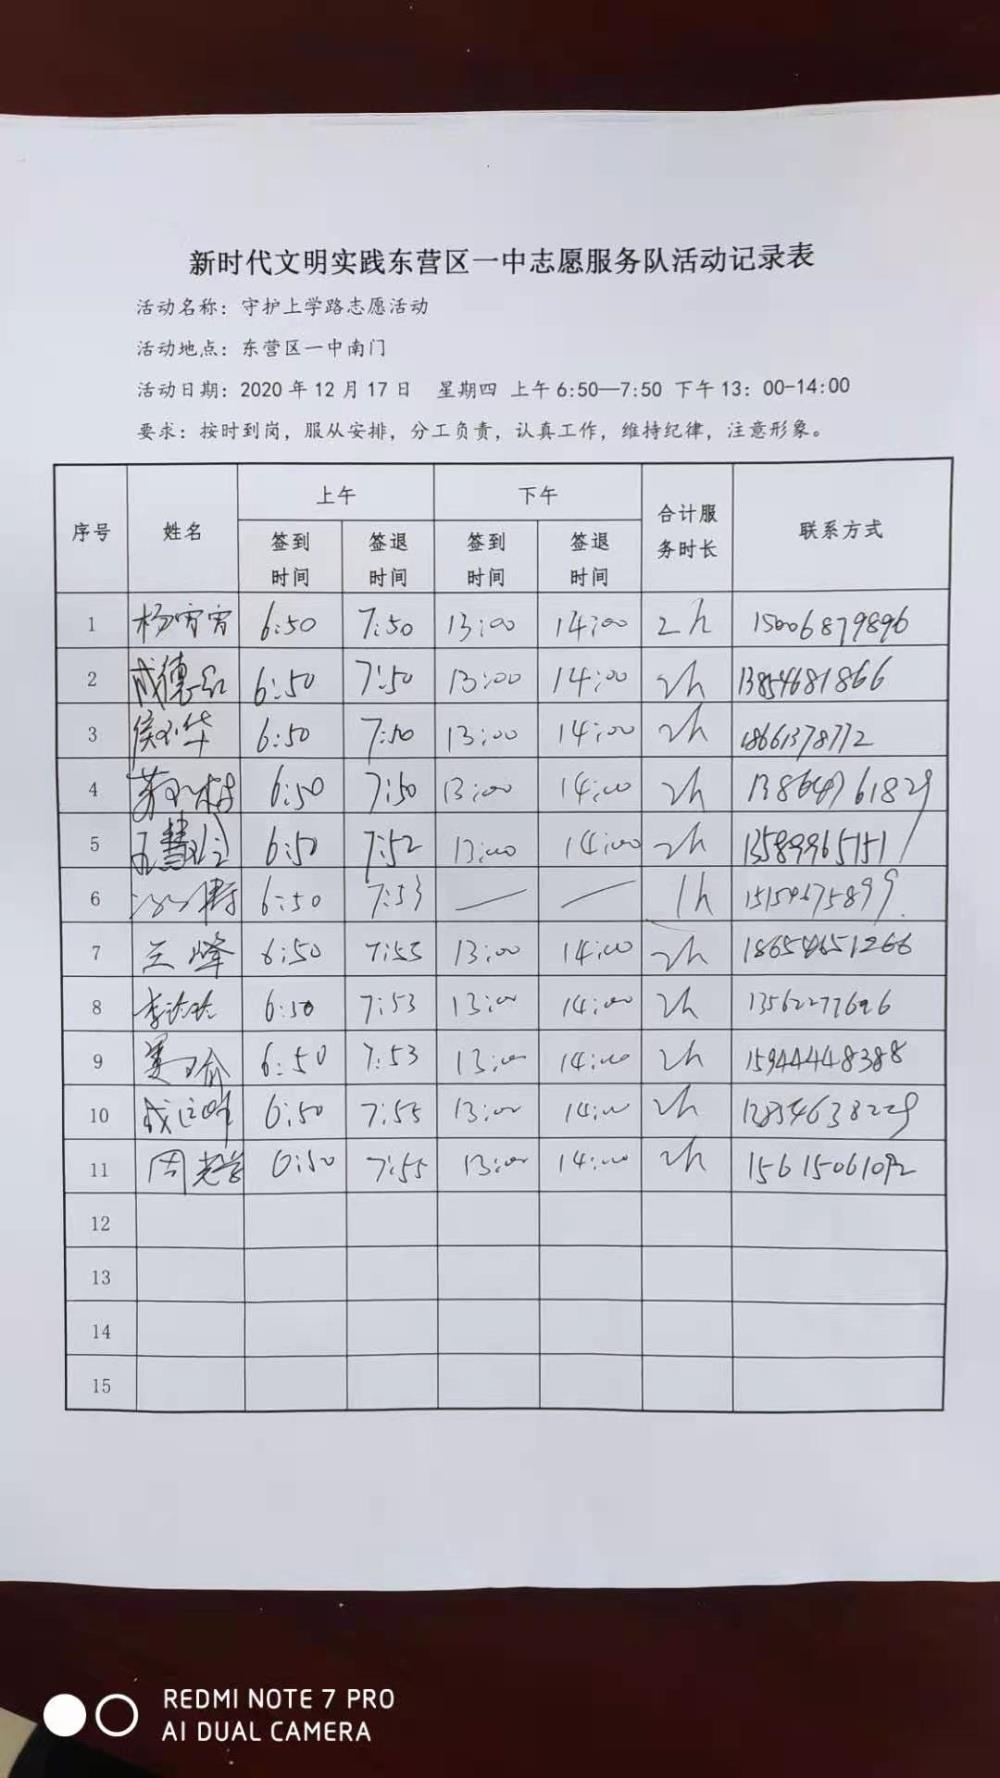 新时代文明实践东营区一中志愿服务队活动记录表
活动名称：守护上学路志愿活动
活动地点：东营区一中南门
活动日期：2020年12月17日 星期四 上午6:50—7:50 下午13：00-14:00
要求：按时到岗，服从安排，分工负责，认真工作，维持纪律，注意形象。
序号 姓名 上午 下午 合计服务时长 联系方式
签到时间 签退时间 签到时间 签退时间
1 杨宵宵 6:50 7:50 13:00 14:00 2h 15006879896
2 成德红 6:50 7:50 13:00 14:00 2h 13854681866
3 6:50 7:50 13:00 14:00 2h 18661378772
4 6:50 7:50 13:00 14:00 2h
5 6:50 7:52 13:00 14:00 2h 13589965151
6 6:50 7:53 — — 1h
7 兰峰 6:50 7:55 13:00 14:00 2h 18654651266
8 6:50 7:53 13:00 14:00 2h 13562277696
9 6:50 7:53 13:00 14:00 2h 15944448388
10 6:50 7:55 13:00 14:00 2h
11 6:50 7:55 13:00 14:00 2h 15615061092
12
13
14
15
REDMI NOTE 7 PRO
AI DUAL CAMERA